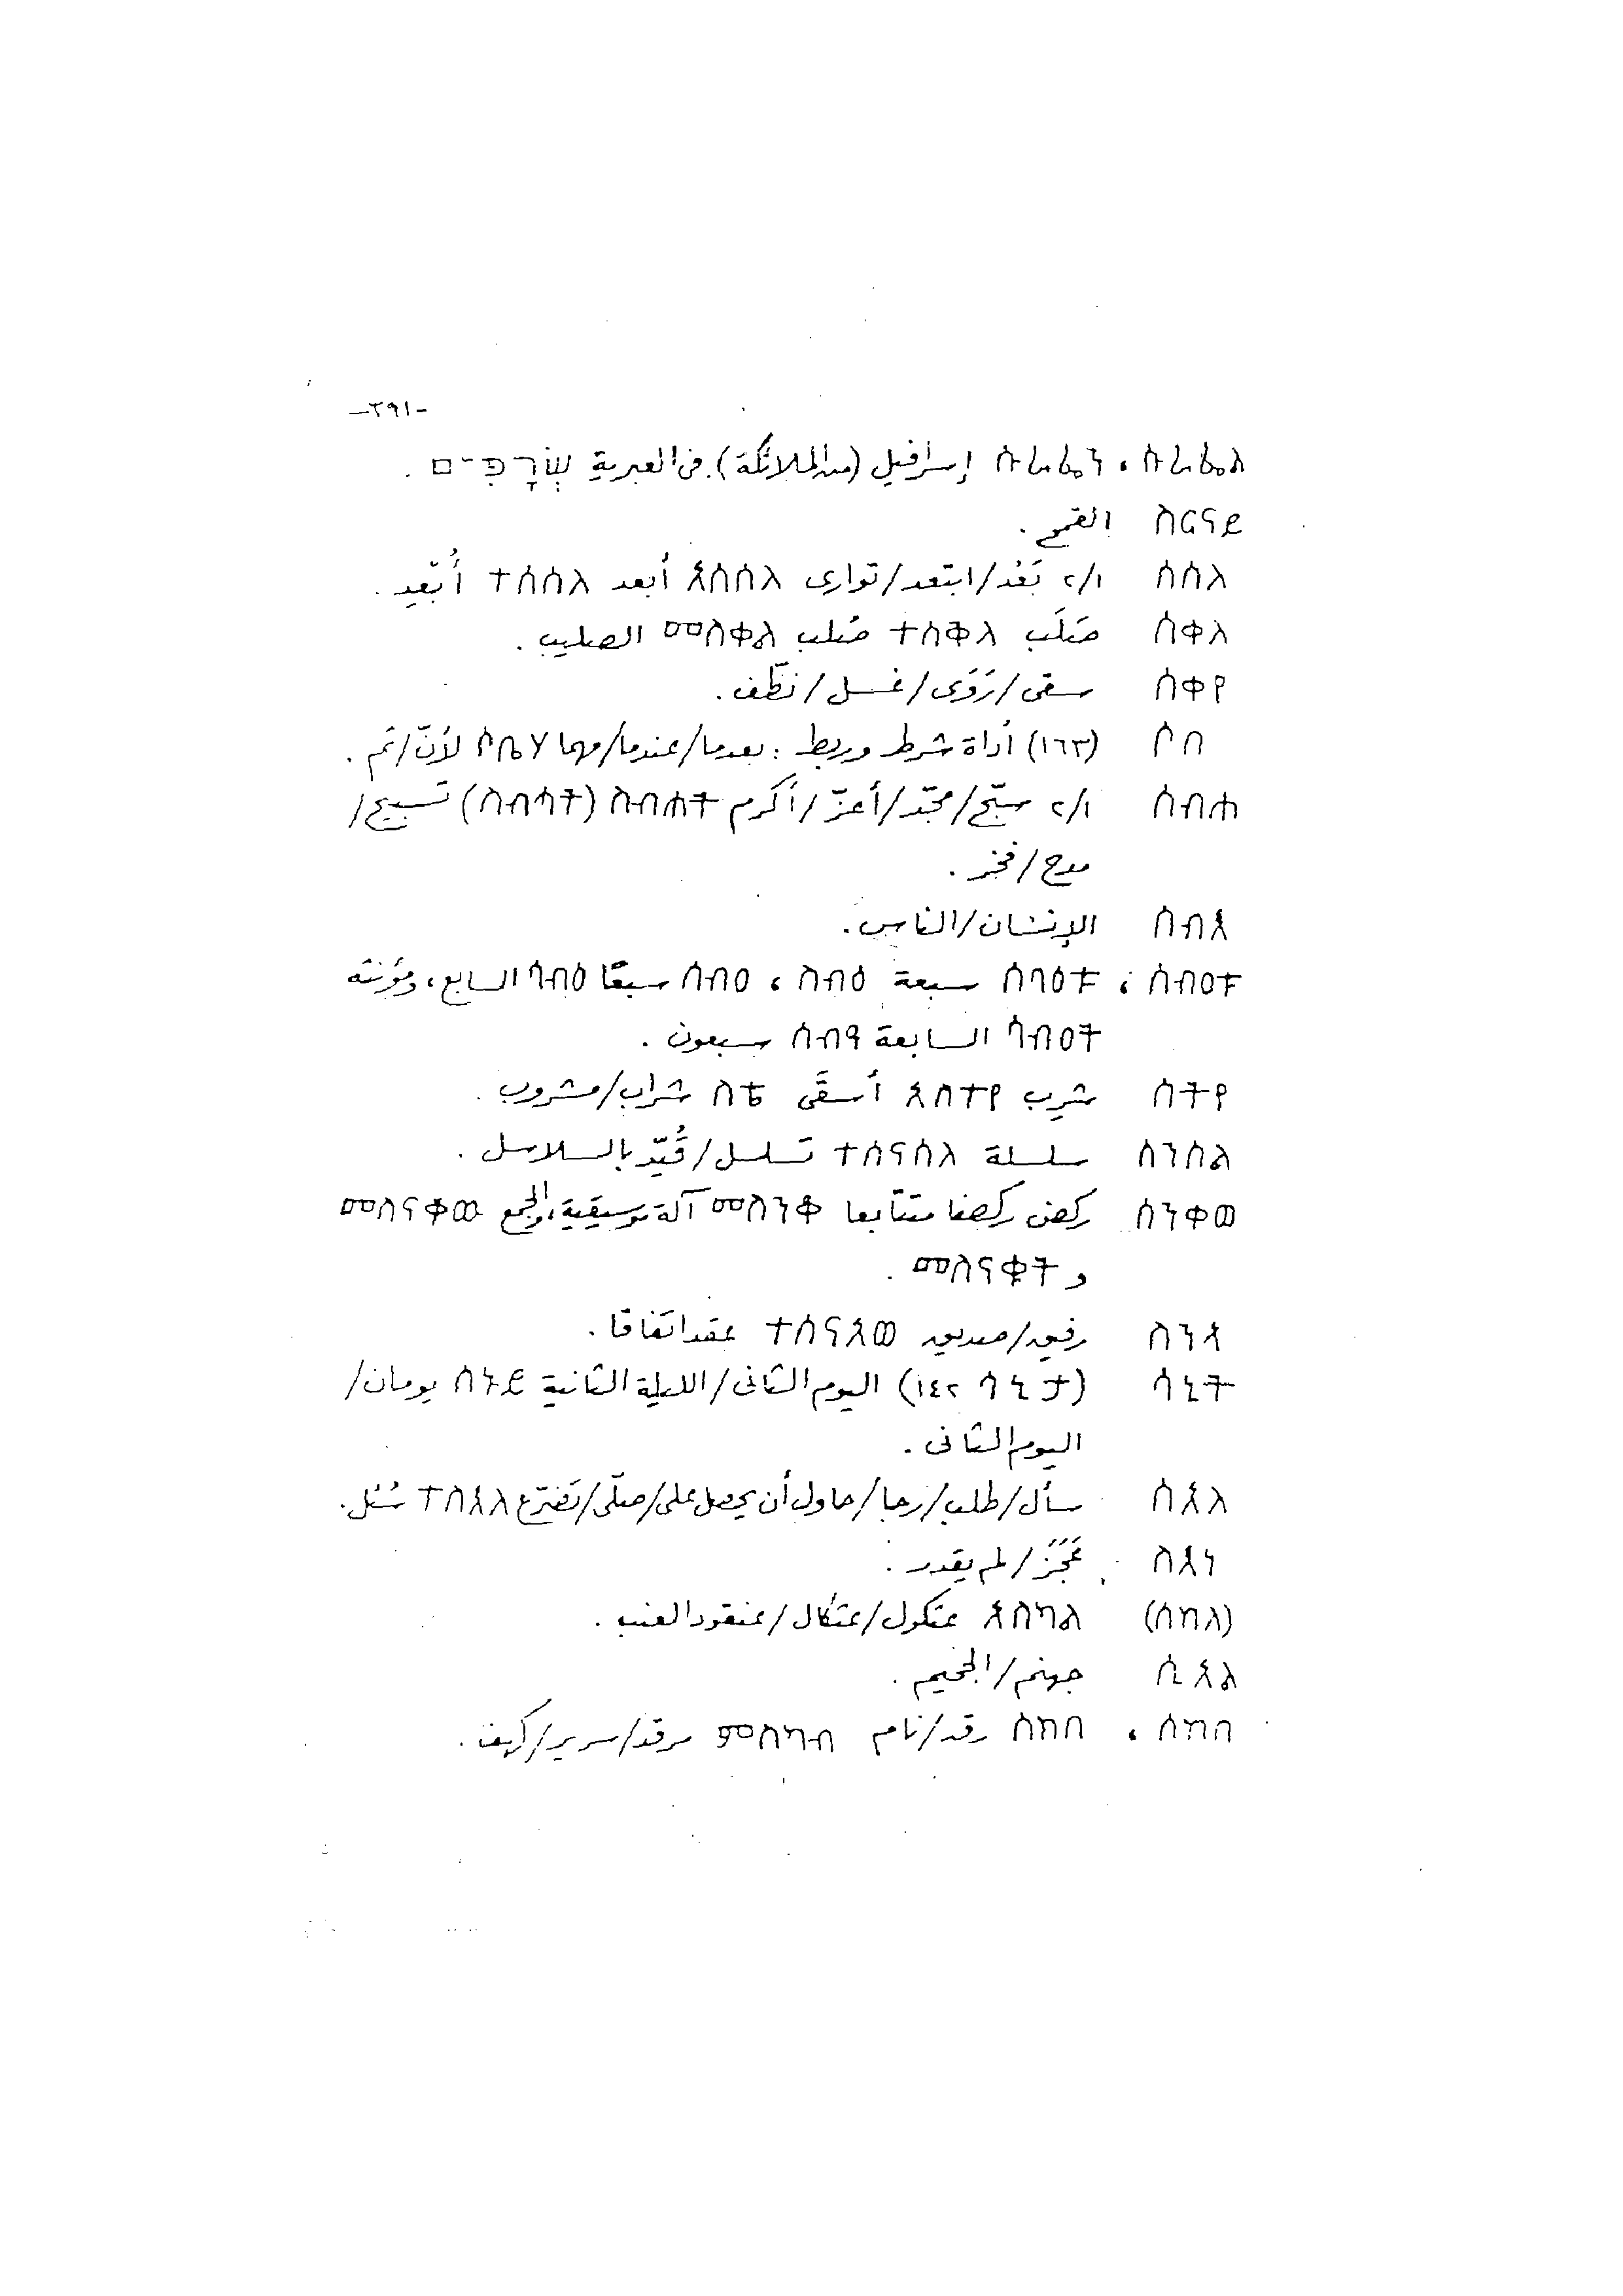 -٣٩١-
ሱራፌል ، ሱራፌን إسرافيل (من الملائكة). في العبرية שְׂרָפִים .
ስርናይ القمح .
ሰሰለ ٢/١ بَعُد/ابتعد/توارى አሰሰለ أبعد ተሰሰለ أُبْعِد .
ሰቀለ صَلَب ተሰቅለ صُلب መስቀል الصليب .
ሰቀየ سقى/رَوَى/غسل/نظّف.
ሶበ (١٦٣) أداة شرط وربط : بعدما/عندما/مهما ሶቤሃ لأنّ/ثم .
ሰብሐ ٢/١ سبّح/مجّد/أعزّ/أكرم ስብሐት (ስብሓት) تسبيح/
مدح/فخر .
ሰብእ الإنسان/الناس.
ሰብዐቱ ، ሰባዕቱ سبعة ሰብዑ ، ስብዕ سبعًا ሳብዕ السابع، ومؤنثه
ሳብዕት السابعة ሰብዓ سبعون .
ሰትየ شرب አስተየ أسقَى ስቴ شراب/مشروب .
ሰንሰል سلسلة ተሰናሰለ تسلسل/قُيّد بالسلاسل .
ሰንቀወ ركض ركضا متتابعا መሰንቆ آلة موسيقية، والجمع መሰናቅው
و መሰናቅት .
ሰንአ رفيق/صديق ተሰናአወ عقد اتفاقا.
ሳኒት (ሳኒታ ١٤٢) اليوم الثانى/الليلة الثانية ሰኑይ يومان/
اليوم الثانى .
ሰአለ سأل/طلب/رجا/حاول أن يحصل على/صلّى/تضرّع ተስእለ سُئل.
ስእነ عَجَزَ/لم يقدر .
(ሰከለ) አስካል عثكول/عثكال/عنقود العنب .
ሲኦል جهنم/الجحيم .
ሰከበ ، ሰክበ رقد/نام ምስካብ مرقد/سرير/كهف .